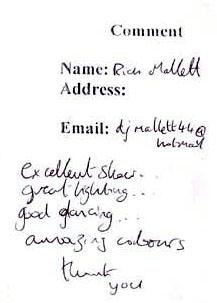 Comment
Name: Rich Mallett
Address:
Email: dj mallett44@
hotmail
excellent show...
great lighting...
good dancing...
amazing colours
thank
you